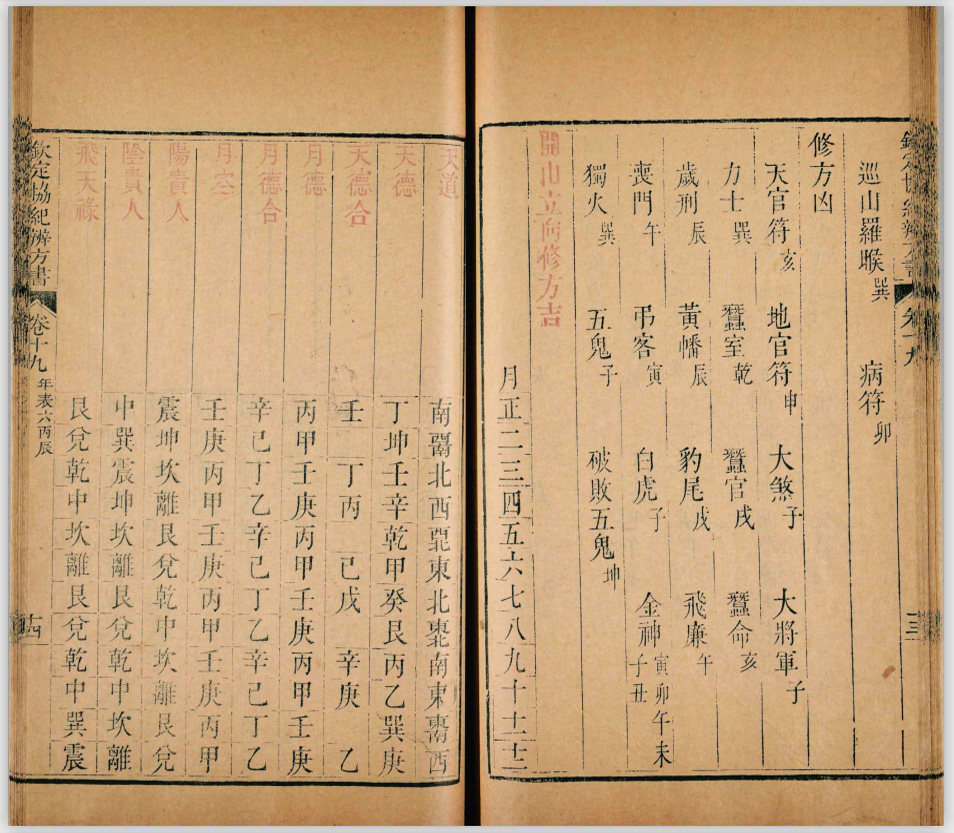 欽定協紀辨方書 卷十九
巡山羅睺巽 病符卯
修方凶
天官符亥 地官符申 大煞子 大將軍子
力士巽 蠶室乾 蠶官戌 蠶命亥
歲刑辰 黃幡辰 豹尾戌 飛廉午
喪門午 弔客寅 白虎子 金神寅卯午未子丑
獨火巽 五鬼子 破敗五鬼坤
開山立向修方吉
月正二三四五六七八九十十一十二
天道 南西南北西西北東北東北南東東南西
天德 丁坤壬辛乾甲癸艮丙乙巽庚
天德合 壬 丁丙 己戊 辛庚 乙
月德 丙甲壬庚丙甲壬庚丙甲壬庚
月德合 辛己丁乙辛己丁乙辛己丁乙
月空 壬庚丙甲壬庚丙甲壬庚丙甲
陽貴人 震坤坎離艮兌乾中坎離艮兌
陰貴人 中巽震坤坎離艮兌乾中坎離
飛天祿 艮兌乾中坎離艮兌乾中巽震
欽定協紀辨方書 卷十九 年表六丙辰 十四